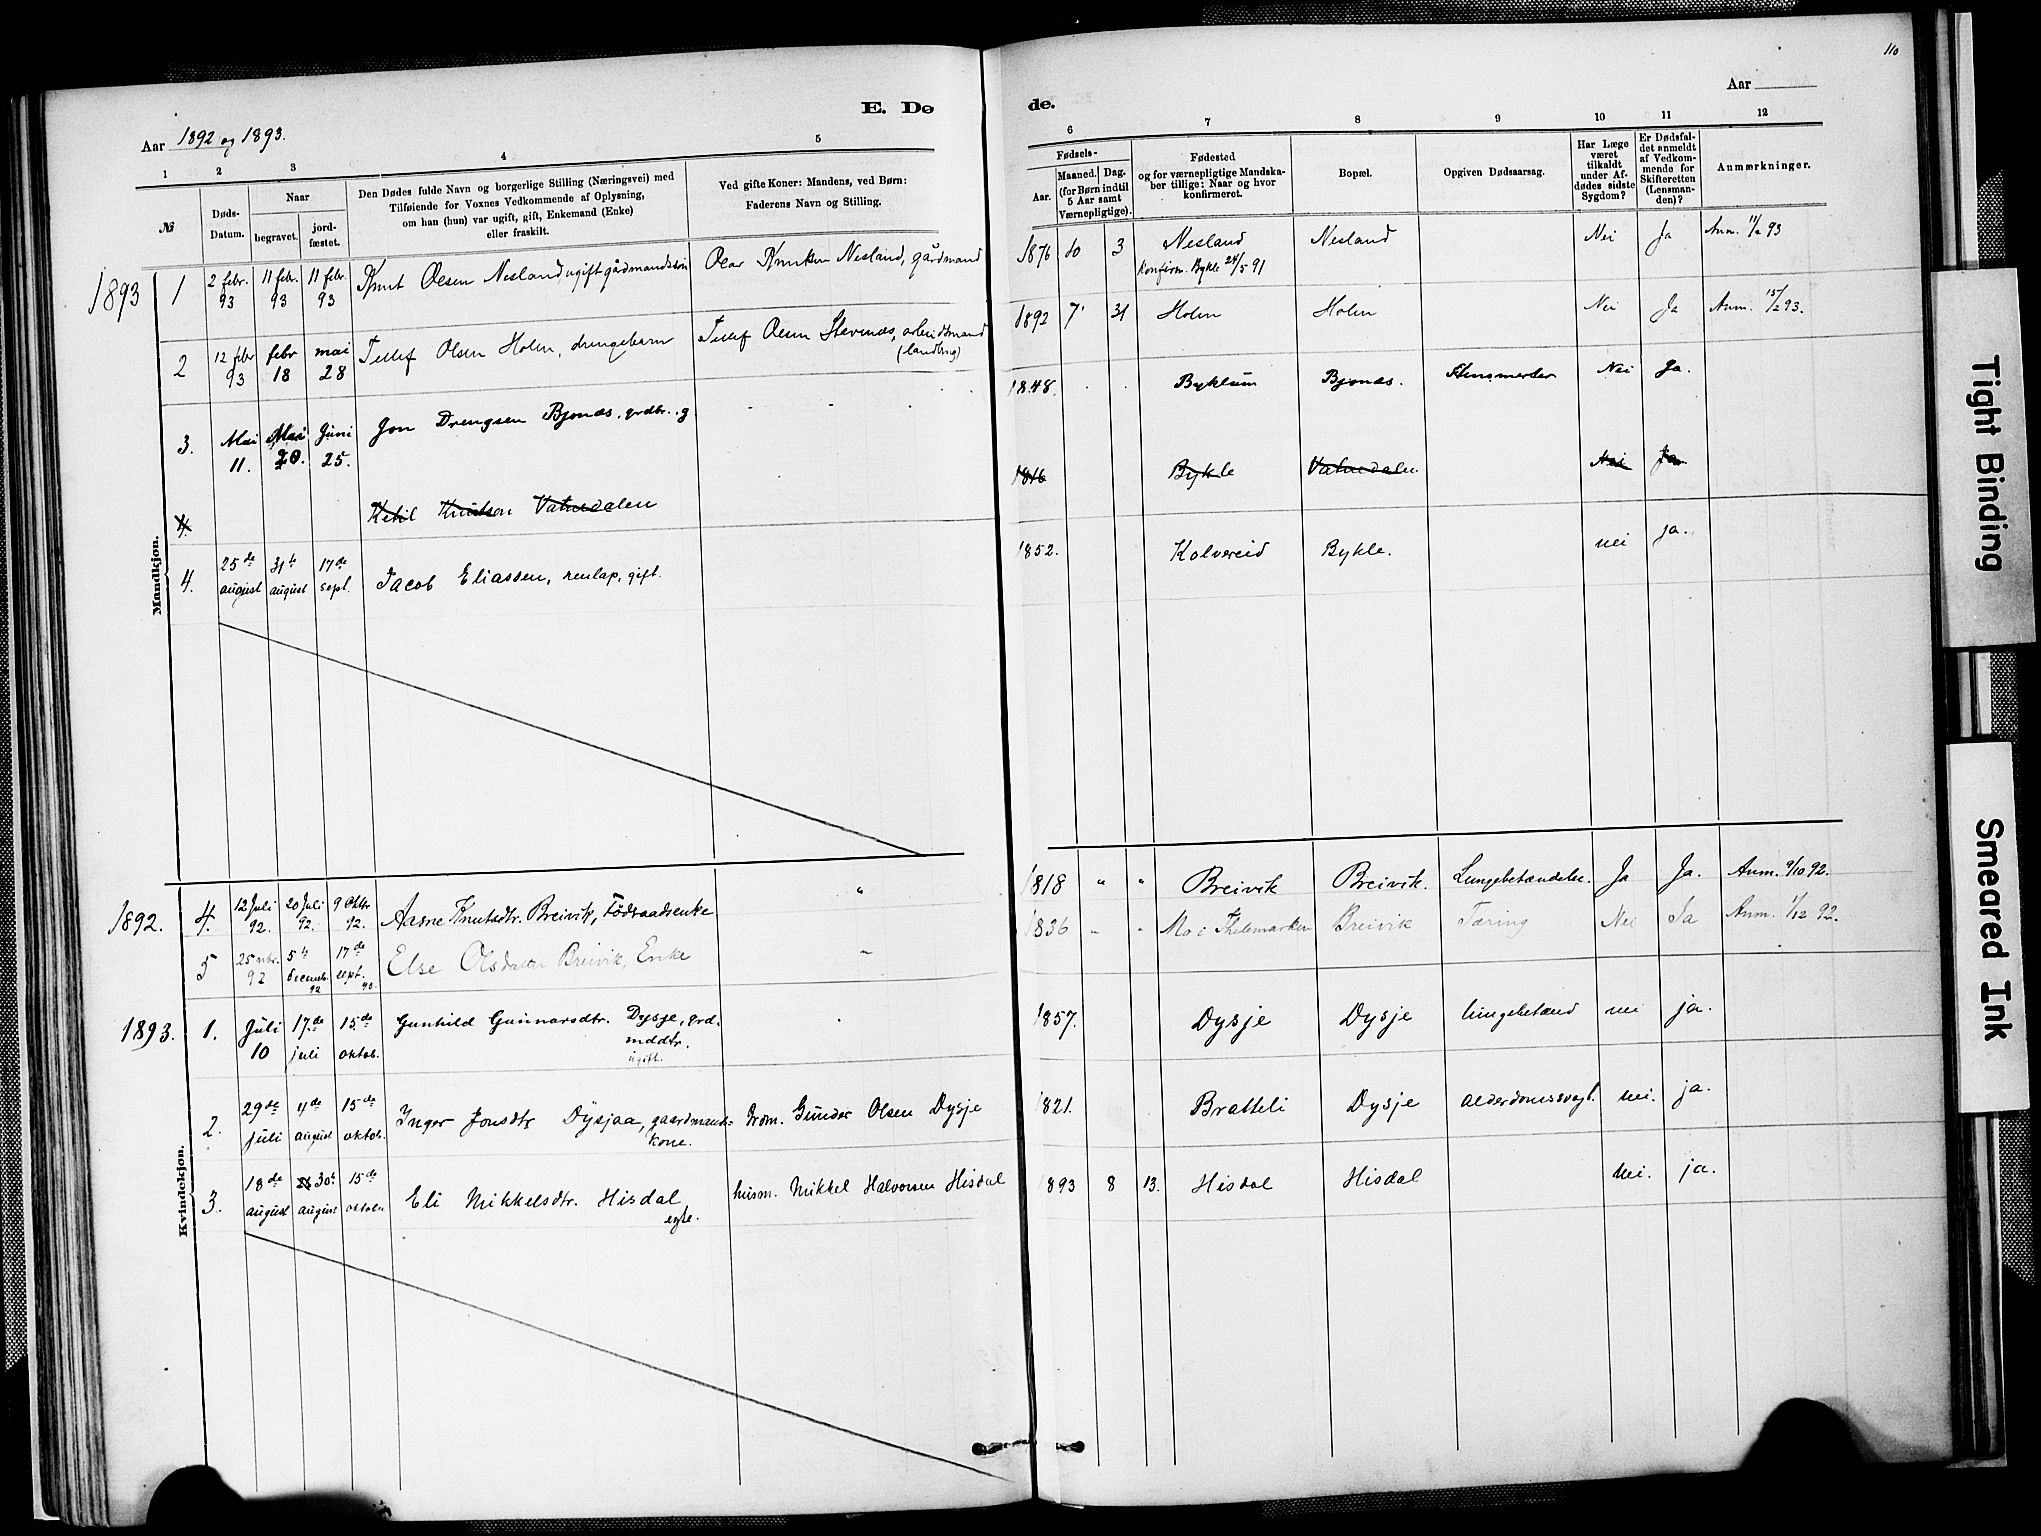 110
E. Dø de.
Aar 1892 og 1893.
Aar
1 2 3 4 5 6 7 8 9 10 11 12
№
Døds-
Datum.
Naar
begravet.
jord-
fæstet.
Den Dødes fulde Navn og borgerlige Stilling (Næringsvei) med
Tilføiende for Voxnes Vedkommende af Oplysning,
om han (hun) var ugift, gift, Enkemand (Enke)
eller fraskilt.
Ved gifte Koner: Mandens, ved Børn:
Faderens Navn og Stilling.
Fødsels-
Aar. Maaned. Dag.
(for Børn indtil
5 Aar samt
Værnepligtige).
Fødested
og for værnepligtige Mandska-
ber tillige: Naar og hvor
konfirmeret.
Bopæl.
Opgiven Dødsaarsag.
Har Læge
været
tilkaldt
under Af-
dødes sidste
Sygdom?
Er Dødsfal-
det anmeldt
af Vedkom-
mende for
Skifteretten
(Lensman-
den)?
Anmærkninger.
Mandkjøn.
1893 1 2 febr. 93 11 febr. 93 11 febr. 93 Knut Olsen Nesland, ugift gårdmandssøn Olav Knutsen Nesland, gårdmand 1876 10 3 Nesland Nesland Nei Ja Anm. 11/2 93
Konfirm. Bykle 24/5 91
2 12 febr 93 febr 18 mai 28 Tellef Olsen Holen, drengebarn Tellef Olsen Stavenæs, arbeidsmand 1892 7 31 Holen Holen Nei Ja Anm. 15/2 93.
(landbrug)
3. Mai 11. Mai 20. Juni 25. Jon Drengsen Bjonæs, grdbr. g 1848. Byklum Bjonæs. Nei Ja.
4. Ketil Knutson Vatnedalen 1816 Bykle Vatnedalen Nei Ja
4. 25de august 31te august 17de sept. Jacob Eliassen, renlap, gift. 1852. Kolvereid Bykle. nei ja.
Kvindekjøn.
1892. 4. 12 Juli 92. 20 Juli 92. 9 Oktbr 92. Aasne Knutsdtr. Breivik, Födraadsenke " 1818 " " Breivik Breivik. Lungebetændelse. Ja Ja. Anm. 9/10 92.
5 25 nbr. 92 5te decemb. 92 17de sept. 93. Else Olsdatter Breivik, Enke " 1836 " " Mo i Thelemarken Breivik Tæring Nei Ja Anm. 1/12 92.
1893. 1. Juli 10 17de juli 15de oktob. Gunhild Gunnarsdtr. Dysje, grd. 1857. Dysje Dysje lungebetænd nei ja.
mddtr.
ugift.
2. 29de juli 4de august 15de oktob. Inger Jonsdtr Dysjaa, gaardmands- Grdm. Gunder Olsen Dysje 1821. Bratteli Dysje alderdomssvagh. nei. ja.
kone.
3. 18de august 30te august 15de oktober Eli Mikkelsdtr. Hisdal husm. Mikkel Halvorsen Hisdal 1893 8 13. Hisdal Hisdal nei. ja.
egte.
Tight Binding
Smeared Ink